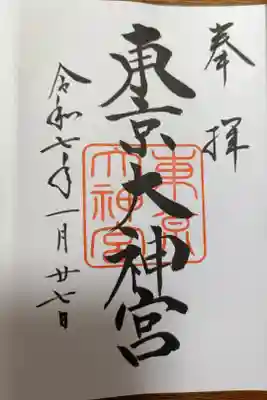 奉拝
東京大神宮
令和七年一月廿七日
東京大神宮